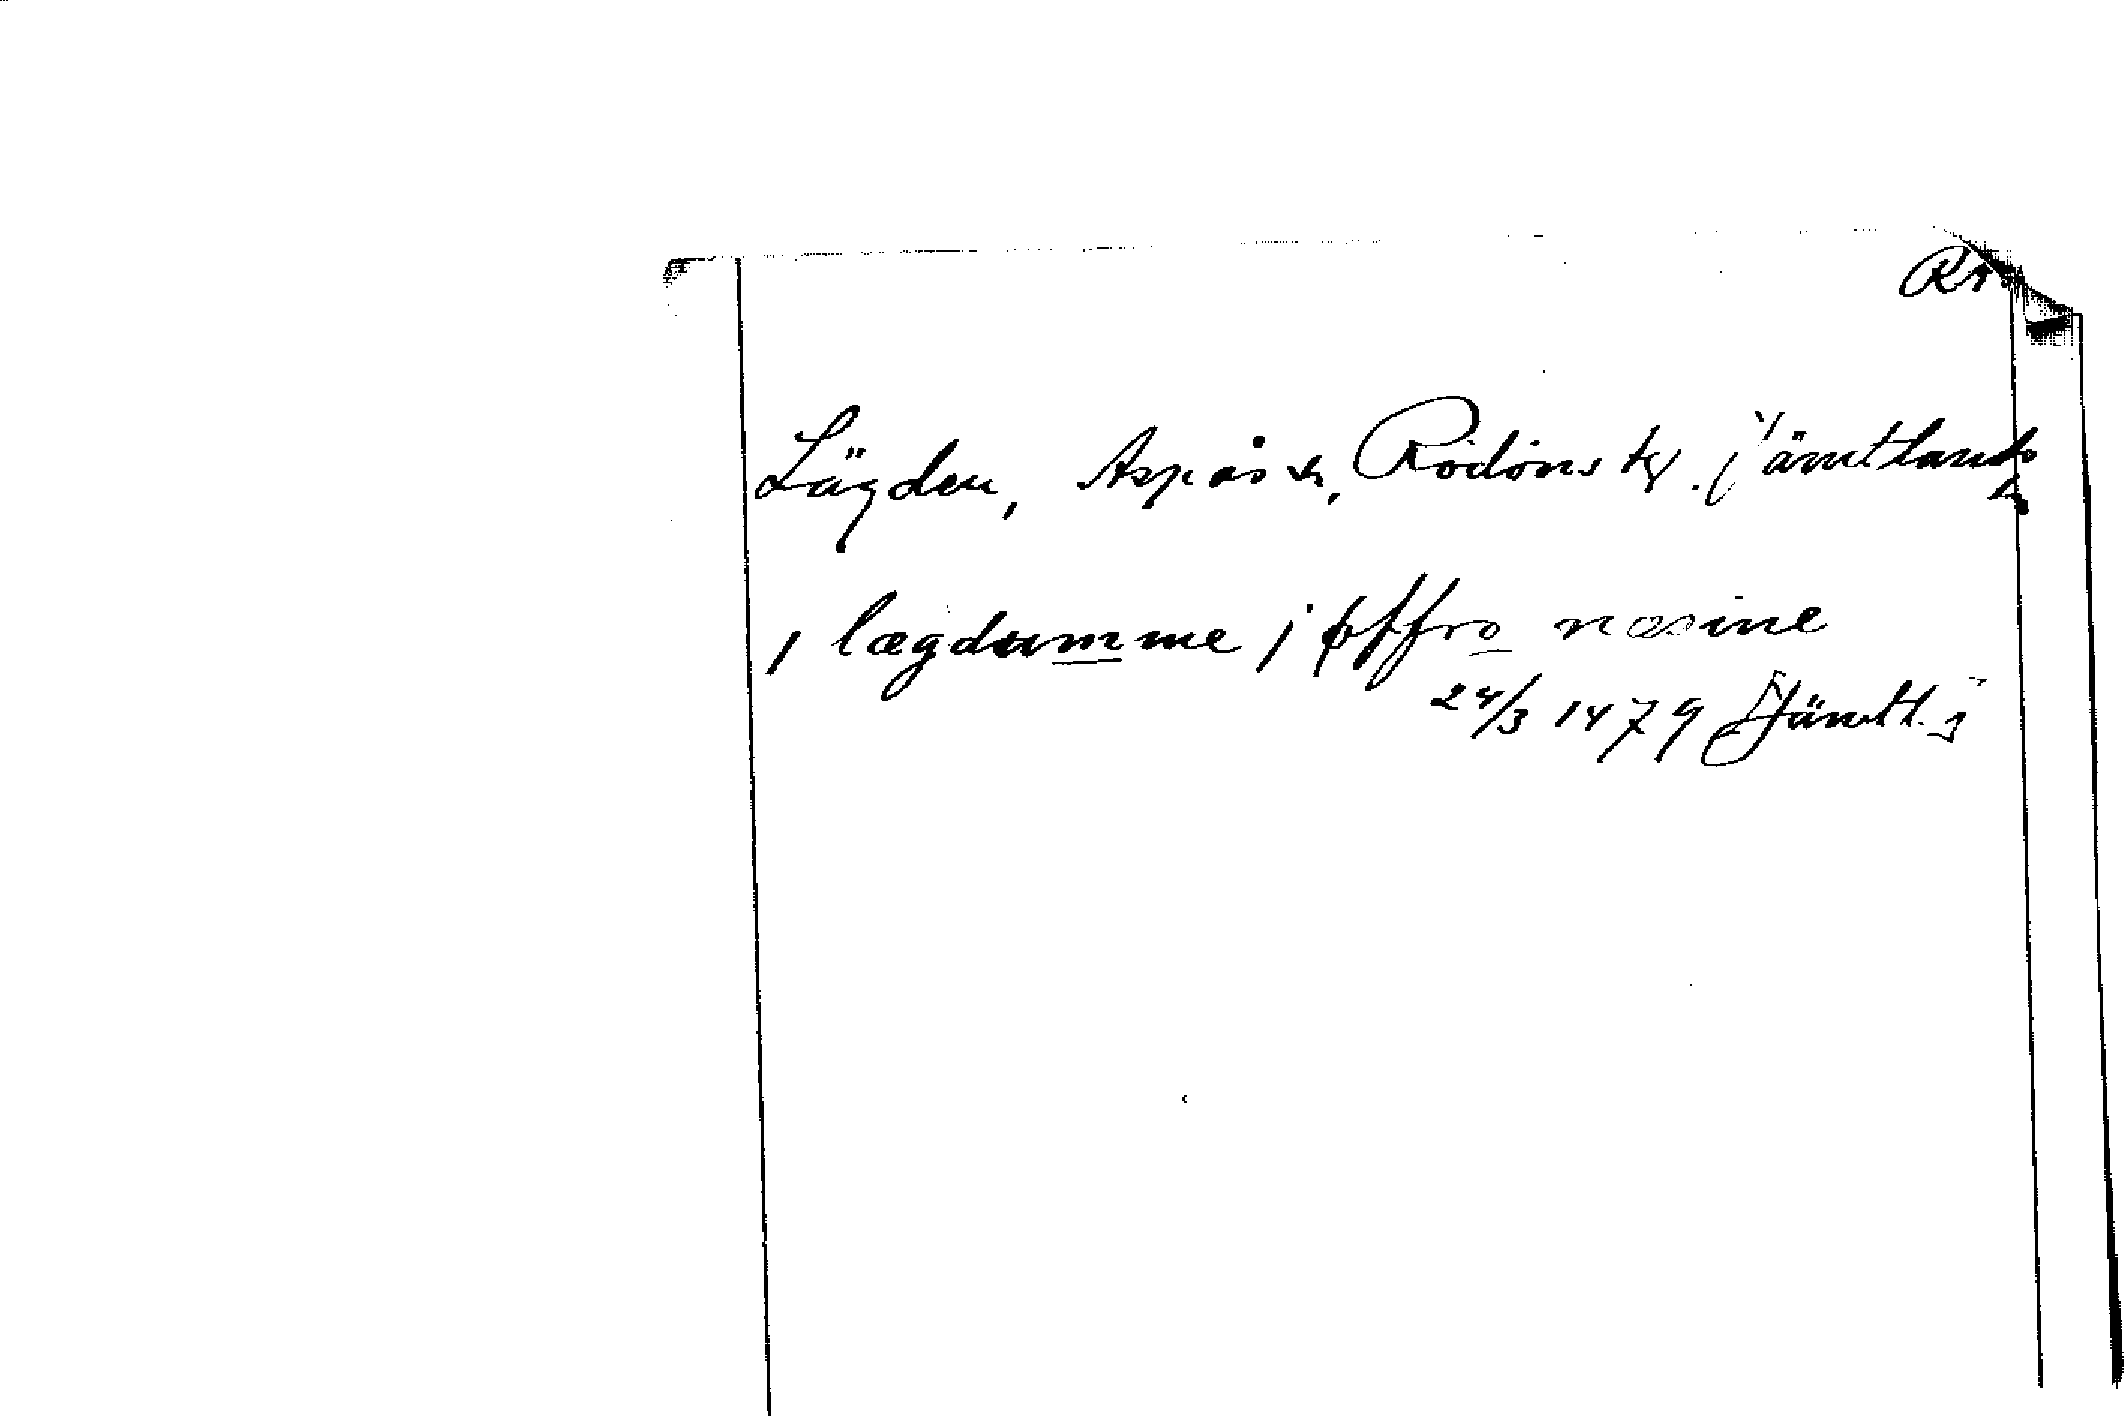 Rr.
Lägden, Aspås sn, Rödöns tg. Jämtlands
l.
j lægdumme j øffro næsine
24/3 1479 Jämtl. j